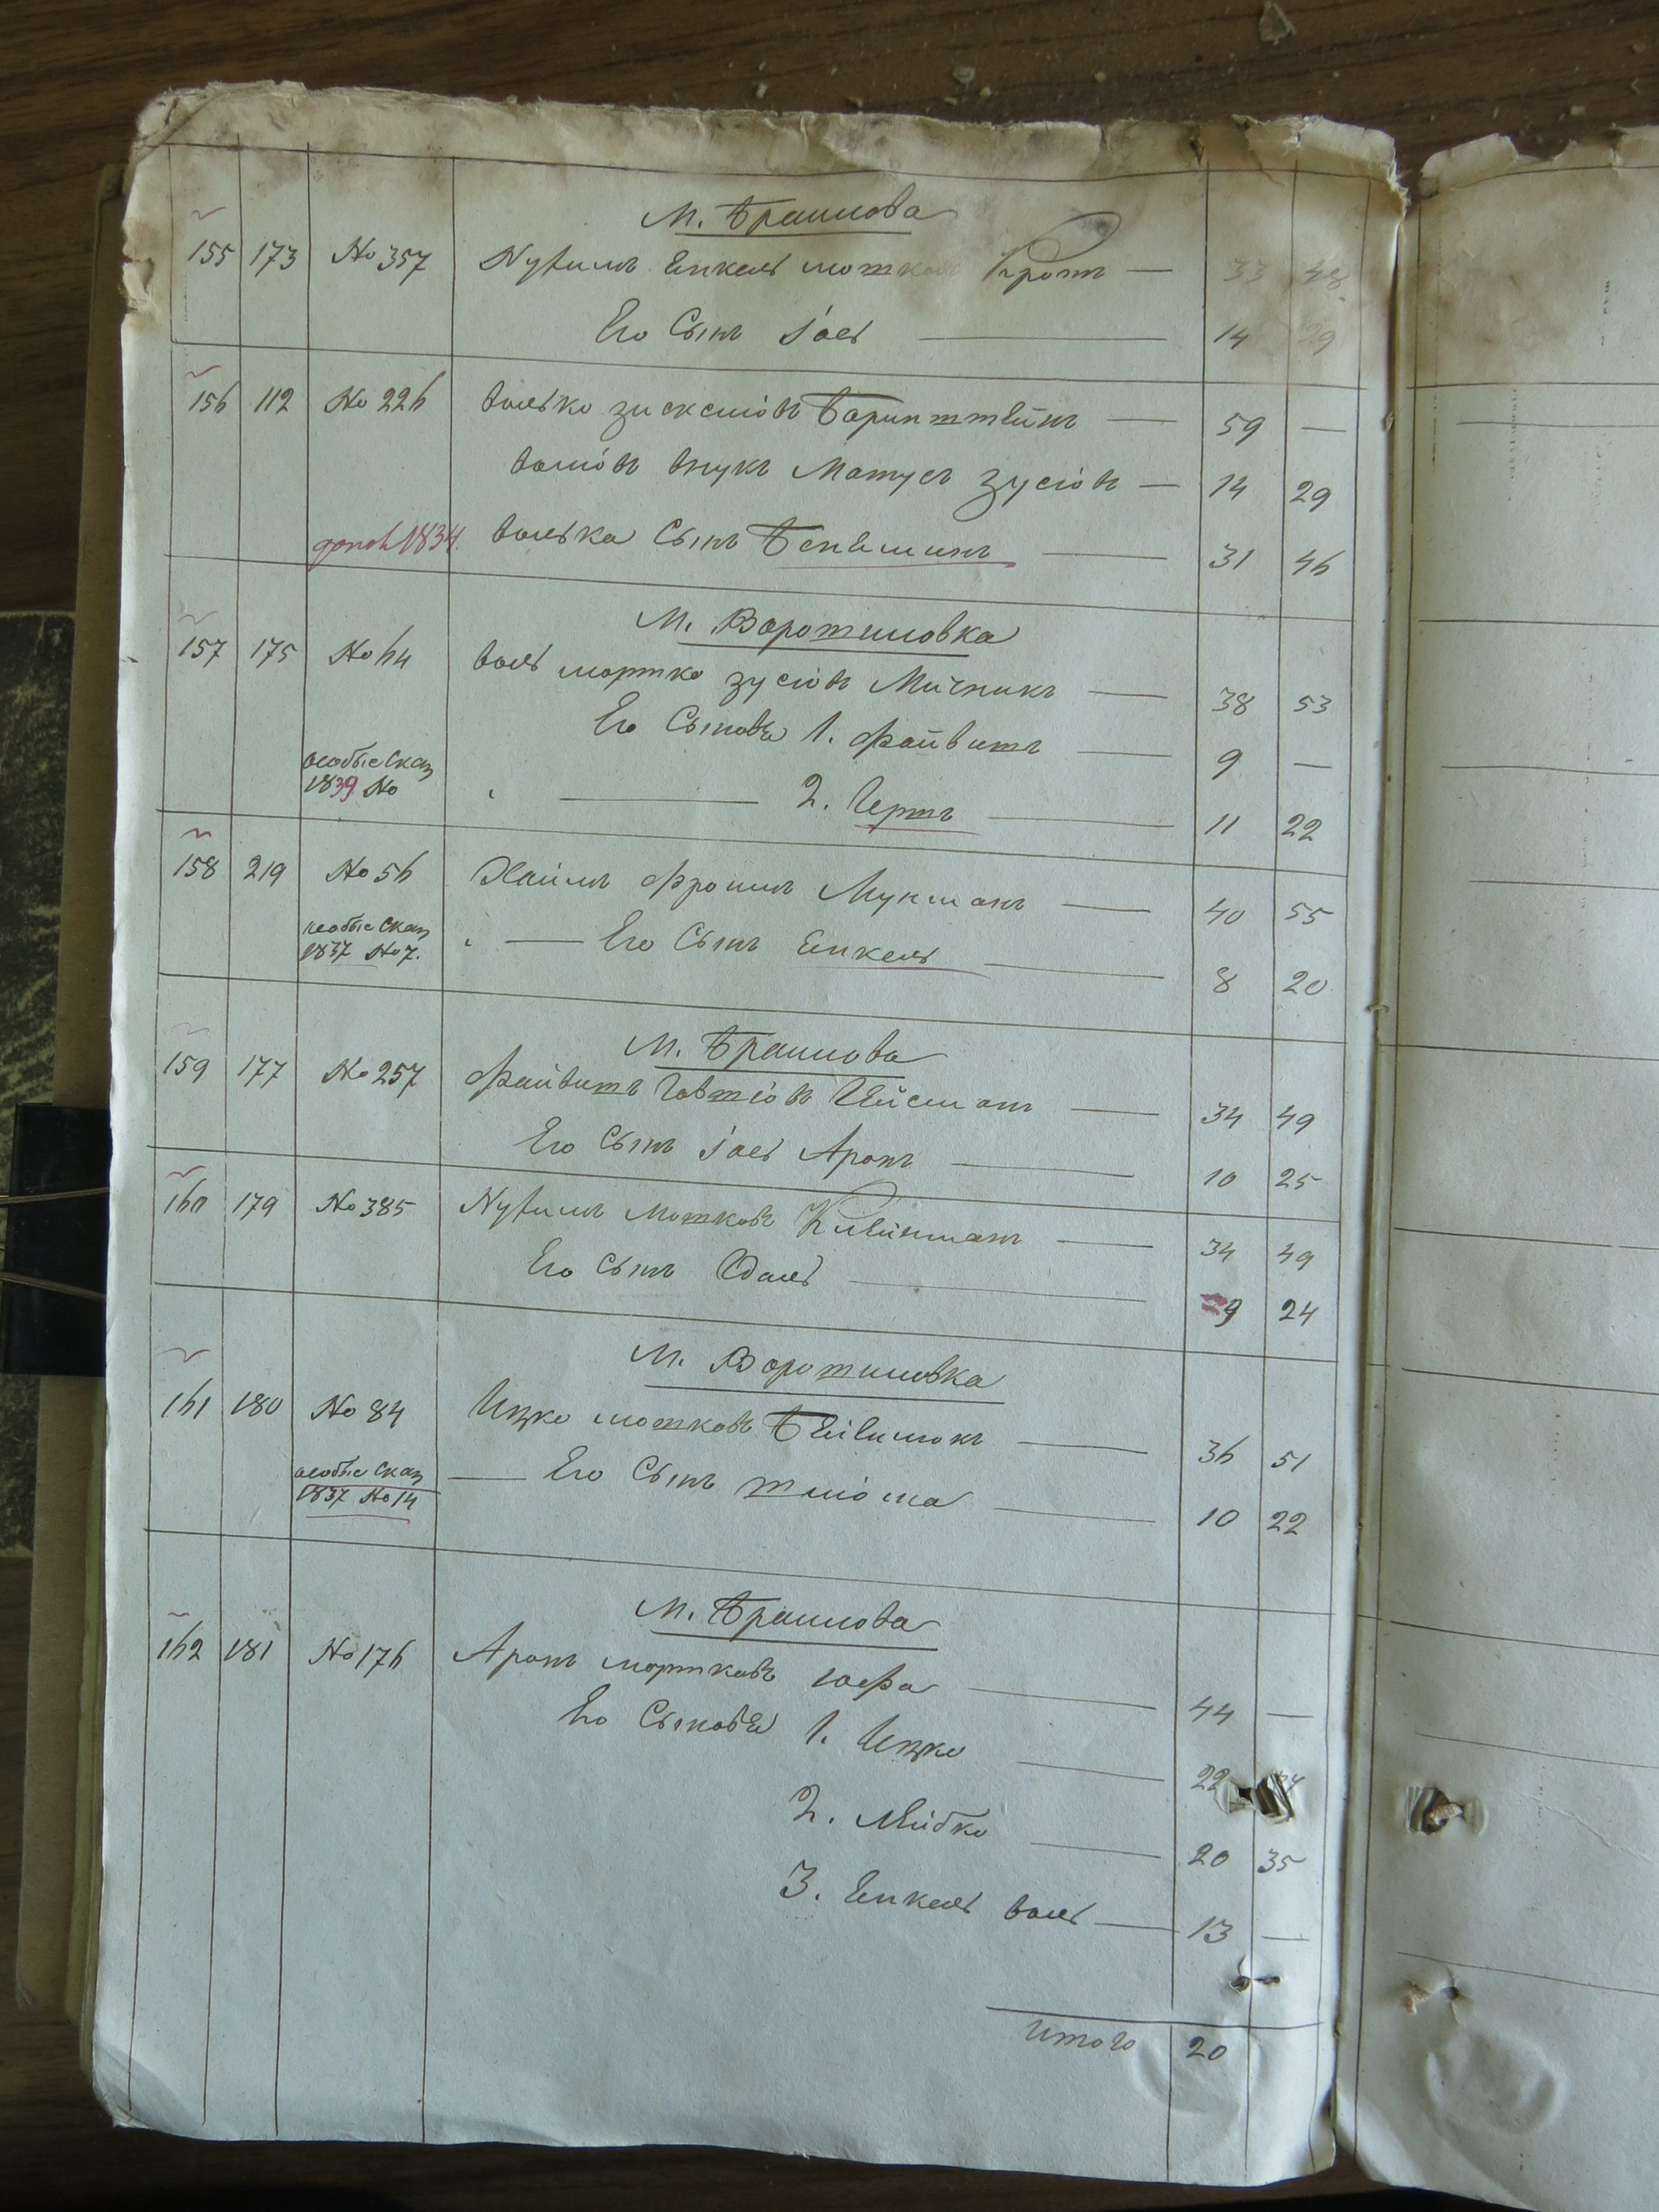 М. Браилова
155 173 № 357 Нухимъ Енкель мошков Кротъ — 33 48
Его Сынъ Іоель — 14 29
156 112 № 226 Волько зискеліовъ Боринштейнъ — 59 —
Воліовъ внукъ Матусъ Зусіовъ — 14 29
допол 1834. Волька Сынъ Беніяминъ — 31 46
М. Ворошиловка
157 175 № 64 Воль мортко зусіовъ Мичникъ — 38 53
Его Сыновья 1. Файвишъ — 9 —
особые Сказ 1839 № 2. Гершъ — 11 22
158 219 № 56 Хаимъ Фроимъ Мукманъ — 40 55
особые Сказ 1837 № 7. — Его Сынъ Енкель — 8 20
М. Браилова
159 177 № 257 Файвишъ Говшіовъ Гейсманъ — 34 49
Его Сынъ Іоель Аронъ — 10 25
160 179 № 385 Нухимъ Мошковъ Клейнманъ — 34 49
Его Сынъ Юдаль — 9 24
М. Ворошиловка
161 180 № 84 Ицко мошковъ — 36 51
особые Сказ 1837 № 14 — Его Сынъ Шліома — 10 22
М. Браилова
162 181 № 176 Аронъ мортковъ Іофа — 44 —
Его Сыновья 1. Ицко — 22
2. Лейбко — 20 35
3. Енкель Воль — 13 —
Итого 20